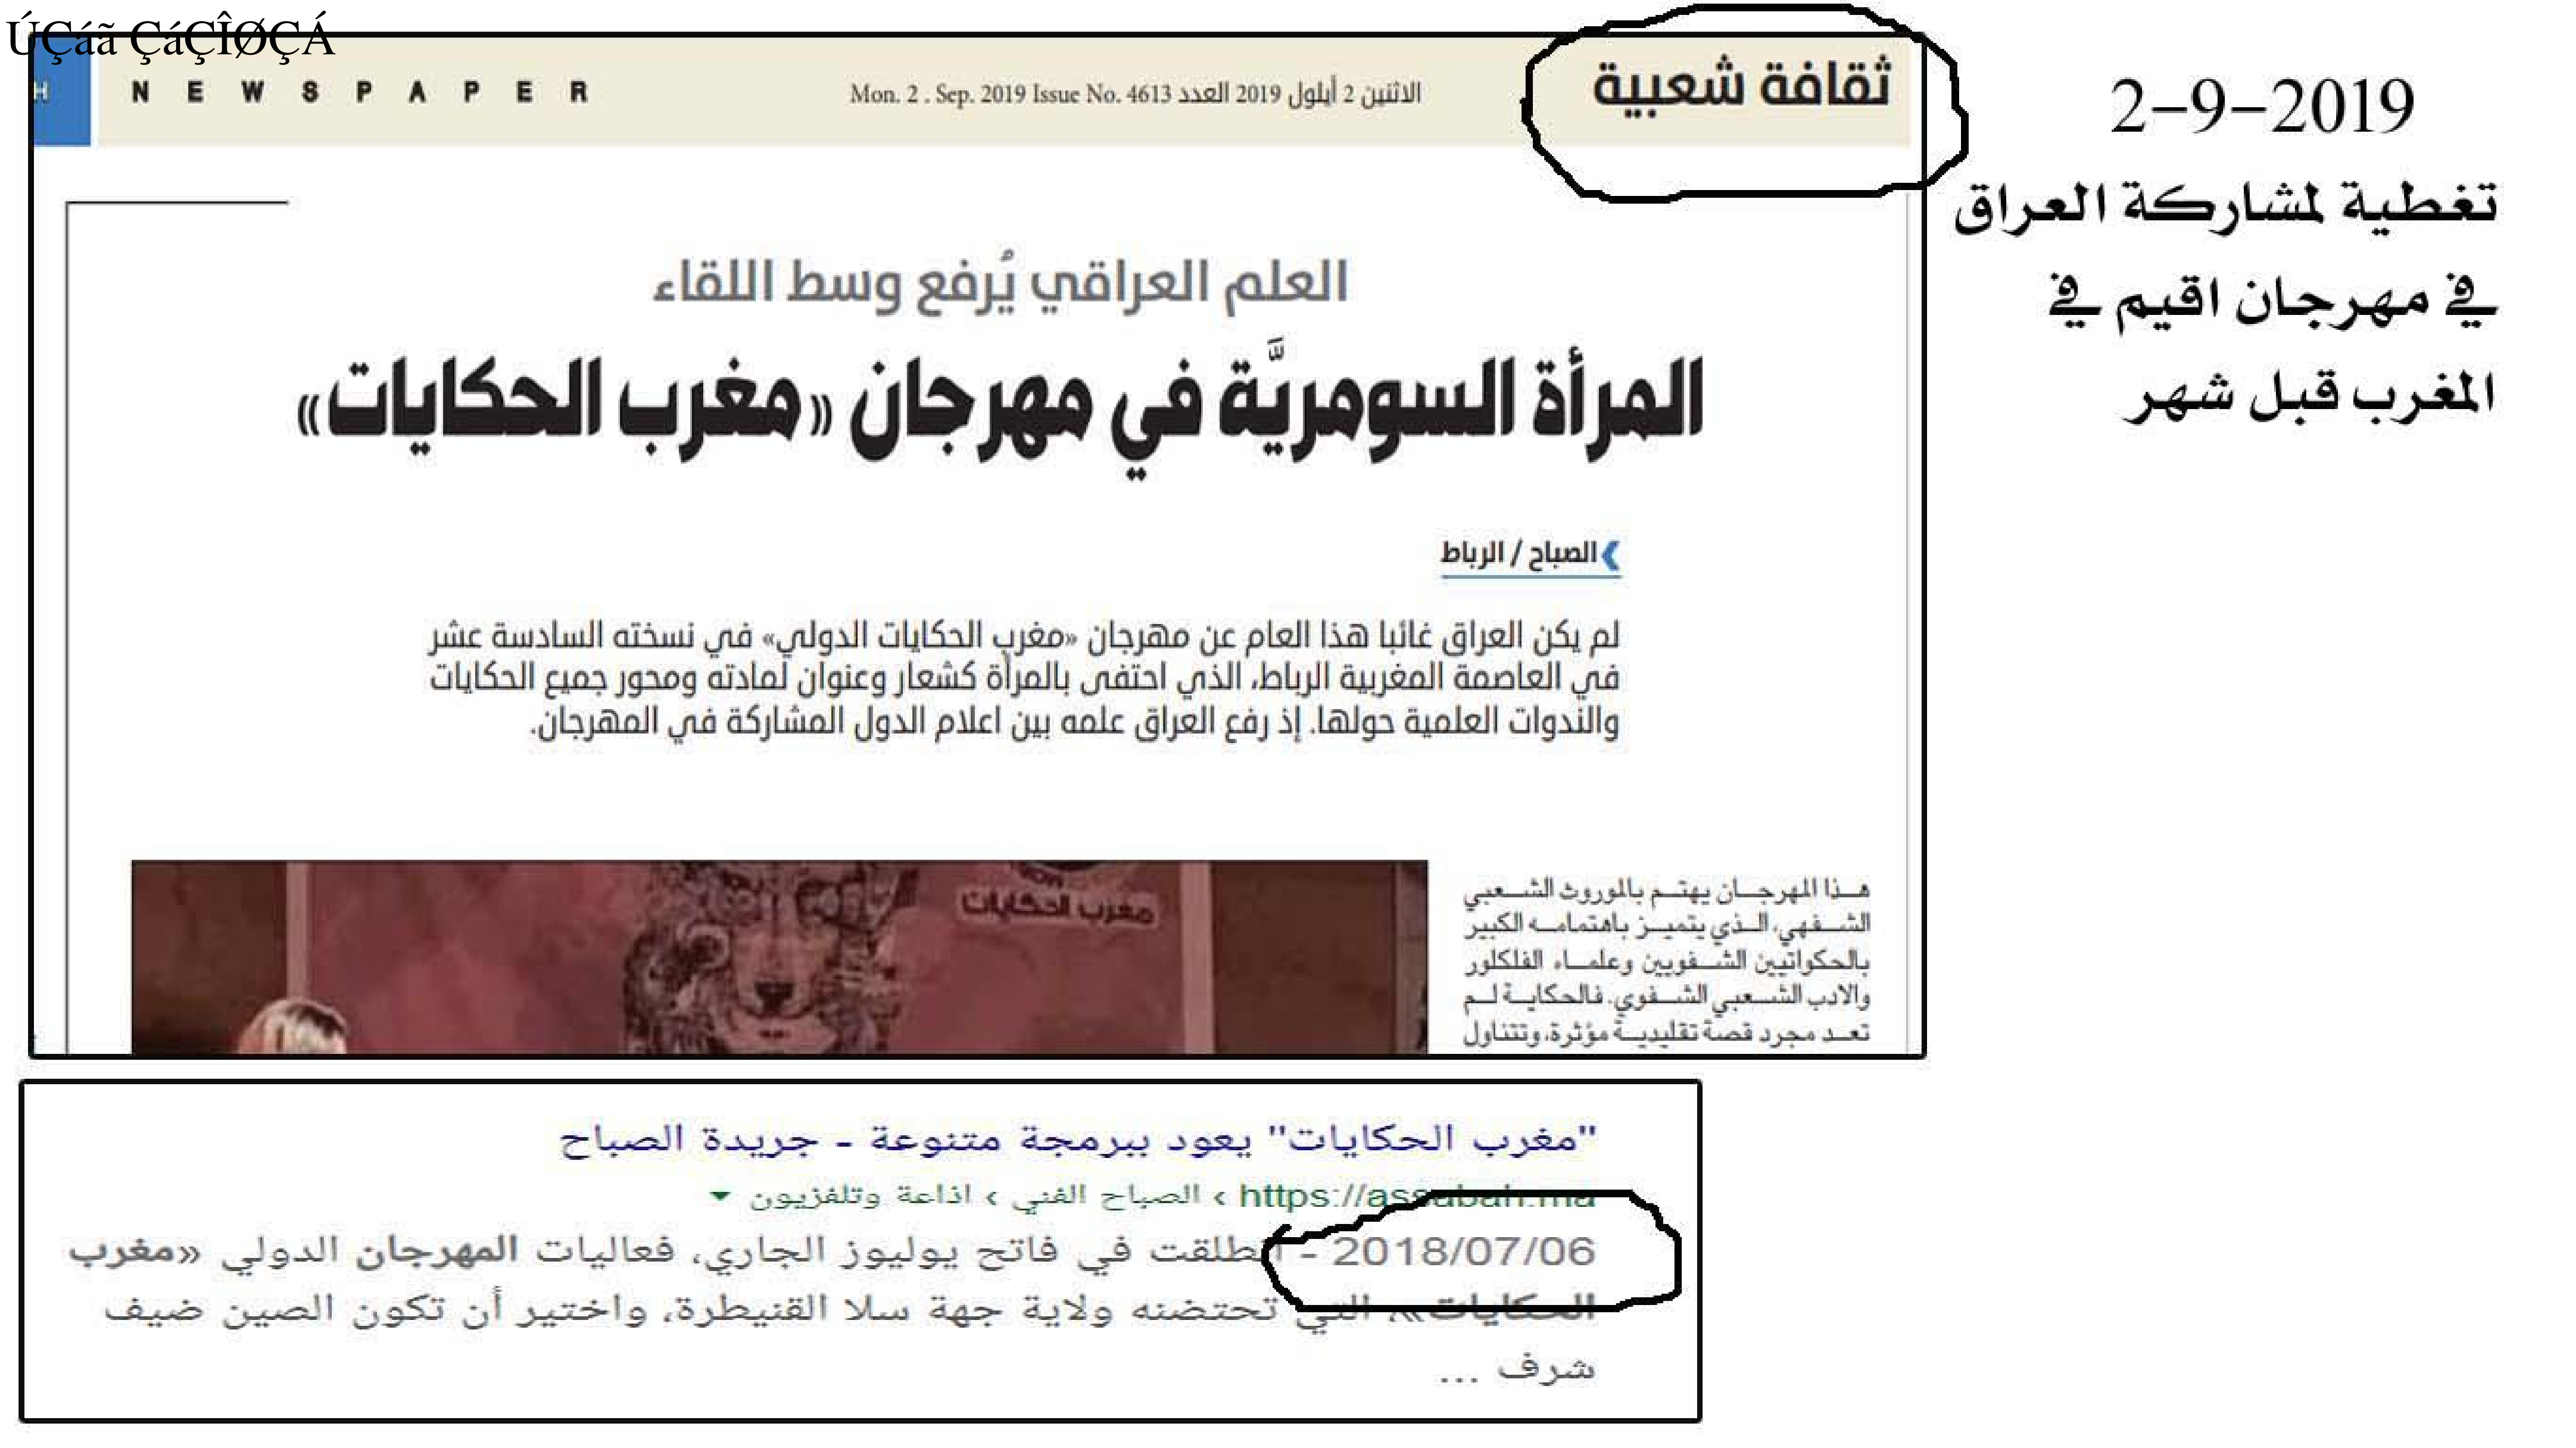 ÚÇáã ÇáÇÎØÇÁ
H NEWSPAPER
الاثنين 2 أيلول 2019 العدد Mon. 2 . Sep. 2019 Issue No. 4613
ثقافة شعبية
2-9-2019
تغطية لمشاركة العراق
في مهرجان اقيم في
المغرب قبل شهر
العلم العراقي يُرفع وسط اللقاء
المرأة السومريَّة في مهرجان «مغرب الحكايات»
الصباح / الرباط
لم يكن العراق غائبا هذا العام عن مهرجان «مغرب الحكايات الدولي» في نسخته السادسة عشر
في العاصمة المغربية الرباط، الذي احتفى بالمرأة كشعار وعنوان لمادته ومحور جميع الحكايات
والندوات العلمية حولها. إذ رفع العراق علمه بين اعلام الدول المشاركة في المهرجان.
مغرب الحكايات
هـذا المهرجـان يهتـم بالموروث الشـعبي
الشـفهي، الـذي يتميـز باهتمامـه الكبير
بالحكواتيين الشـفويين وعلمـاء الفلكلور
والادب الشـعبي الشـفوي. فالحكايـة لـم
تعـد مجرد قصة تقليديـة مؤثرة، وتتناول
"مغرب الحكايات" يعود ببرمجة متنوعة - جريدة الصباح
https://assabah.ma › الصباح الفني › اذاعة وتلفزيون
2018/07/06 - انطلقت في فاتح يوليوز الجاري، فعاليات المهرجان الدولي «مغرب
الحكايات»، التي تحتضنه ولاية جهة سلا القنيطرة، واختير أن تكون الصين ضيف
شرف ...